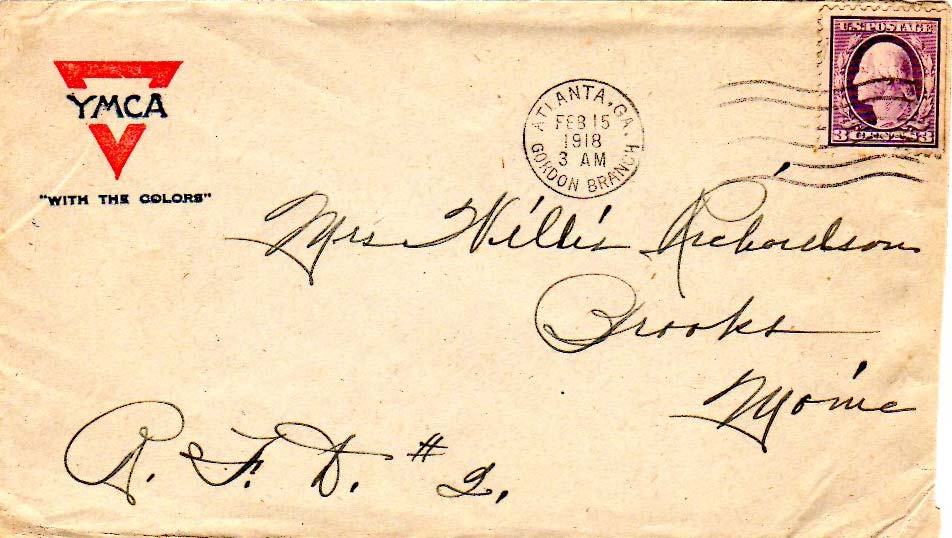 YMCA
"WITH THE COLORS"
ATLANTA, GA.
FEB 15
1918
3 AM
GORDON BRANCH
U.S. POSTAGE
3 3
Mrs Willis Richardson
Brooks
Maine
R. F. D. # 2.